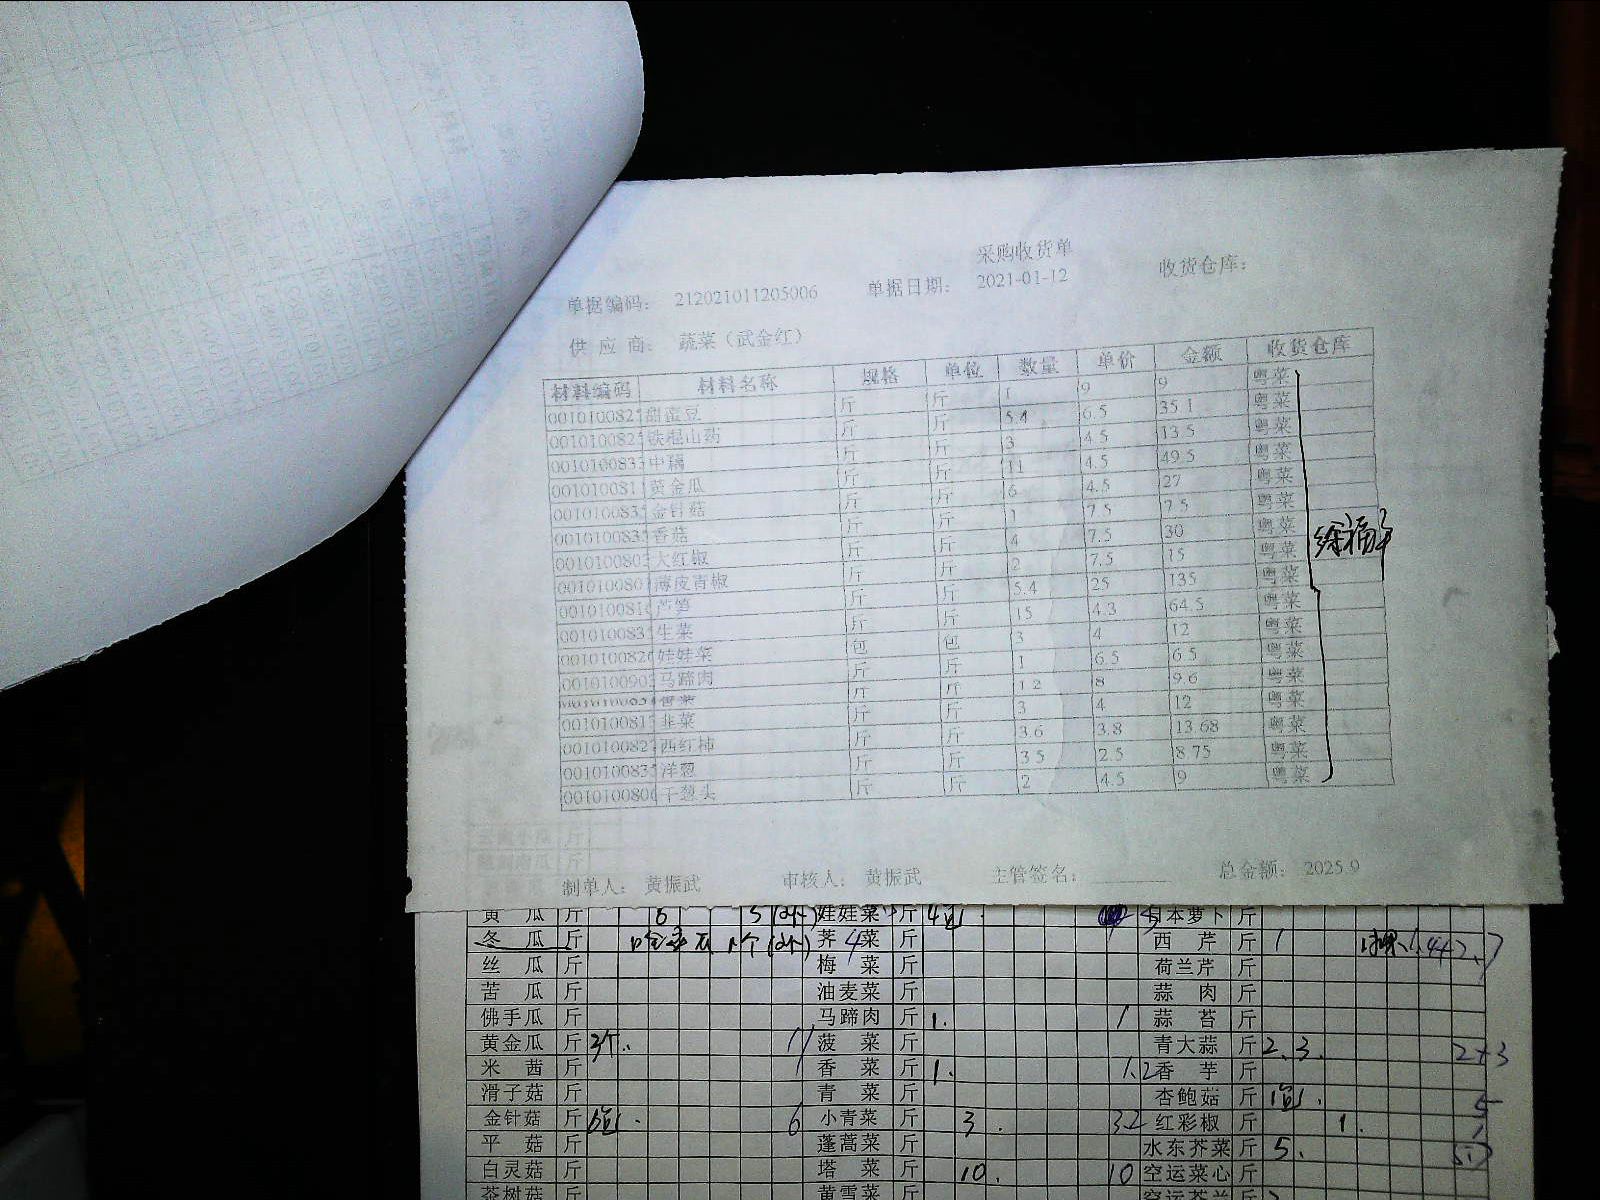 采购收货单
单据编码： 212021011205006 单据日期： 2021-01-12 收货仓库：
供 应 商： 蔬菜（武金红）
材料编码 材料名称 规格 单位 数量 单价 金额 收货仓库
001010082 甜蜜豆 斤 斤 1 9 9 粤菜
001010082 铁棍山药 斤 斤 5.4 6.5 35.1 粤菜
001010083 中藕 斤 斤 3 4.5 13.5 粤菜
001010081 黄金瓜 斤 斤 11 4.5 49.5 粤菜
001010083 金针菇 斤 斤 6 4.5 27 粤菜
001010083 香菇 斤 斤 1 7.5 7.5 粤菜
001010080 大红椒 斤 斤 4 7.5 30 粤菜
001010080 薄皮青椒 斤 斤 2 7.5 15 粤菜
001010081 芦笋 斤 斤 5.4 25 135 粤菜
001010083 生菜 斤 斤 15 4.3 64.5 粤菜
001010082 娃娃菜 包 包 3 4 12 粤菜
001010090 马蹄肉 斤 斤 1 6.5 6.5 粤菜
香菜 斤 斤 1.2 8 9.6 粤菜
001010081 韭菜 斤 斤 3 4 12 粤菜
001010082 西红柿 斤 斤 3.6 3.8 13.68 粤菜
001010083 洋葱 斤 斤 3.5 2.5 8.75 粤菜
001010080 干葱头 斤 斤 2 4.5 9 粤菜
制单人： 黄振武 审核人： 黄振武 主管签名： 总金额： 2025.9
黄 瓜 斤 6 娃娃菜 斤 4包 日本萝卜 斤
冬 瓜 斤 荠 菜 斤 西 芹 斤 1
丝 瓜 斤 梅 菜 斤 荷兰芹 斤
苦 瓜 斤 油麦菜 斤 蒜 肉 斤
佛手瓜 斤 马蹄肉 斤 1. 1 蒜 苔 斤
黄金瓜 斤 3个. 11 菠 菜 斤 青大蒜 斤 2.3. 2+3
米 茜 斤 香 菜 斤 1. 1.2 香 芋 斤
滑子菇 斤 青 菜 斤 杏鲍菇 斤 1包.
金针菇 斤 6包. 6 小青菜 斤 3. 3.2 红彩椒 斤 1.
平 菇 斤 蓬蒿菜 斤 水东芥菜 斤 5.
白灵菇 斤 塔 菜 斤 10. 10 空运菜心 斤
茶树菇 斤 黄雪菜 斤 空运芥兰 斤